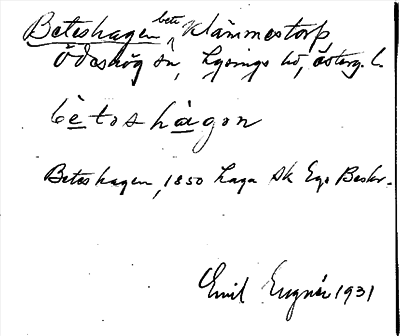 Beteshagen bete Klämmestorp
Ödeshög sn, Lysings hd, Österg. l.
bètoshàgon
Beteshagen, 1850 Laga Sk Ego Beskr.
Emil Eugnér 1931